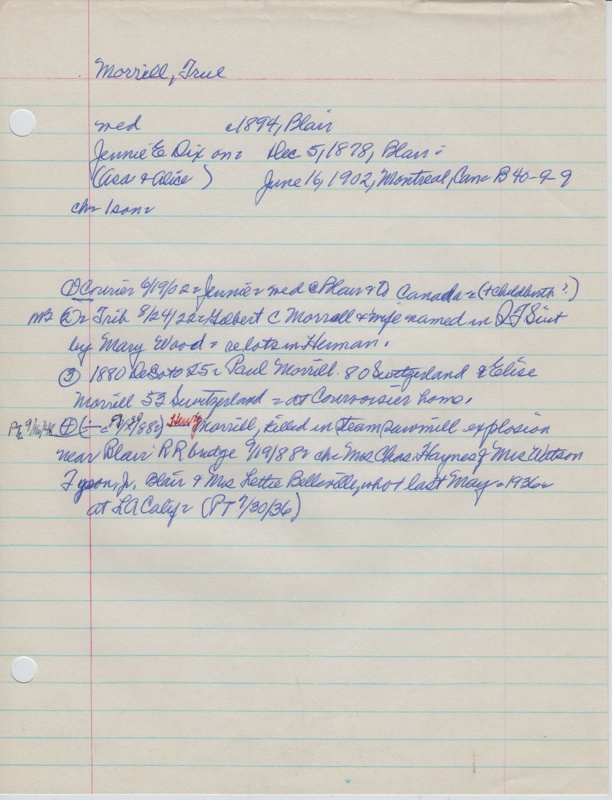 Morrill, True
med c1894, Blair
Jennie E Dix on= Dec 5, 1878, Blair=
(Asa & Alice ) June 16, 1902, Montreal, Can= B 40-9-9
ch= 1 son=
① Courier 6/19/02= Jennie= med @ Blair & to Canada= (+ childbirth ?)
②= Trib 8/24/22= Hobert C Morrell & wife named in Suit
by Mary Wood= re lots in Herman.
③ 1880 DeSoto 25= Paul Morrill 80 Switzerland & Elise
Morrill 53 Switzerland = at Courvoisier home.
④ ( Henry Morrill, killed in steam sawmill explosion
near Blair RR bridge 9/19/88= ch= Mrs Chas. Haynes & Mrs Watson
Tyson, Jr. Blair & Mrs Lettie Belleville, who + last May= 1936=
at LA Calif= (PT 7/30/36)